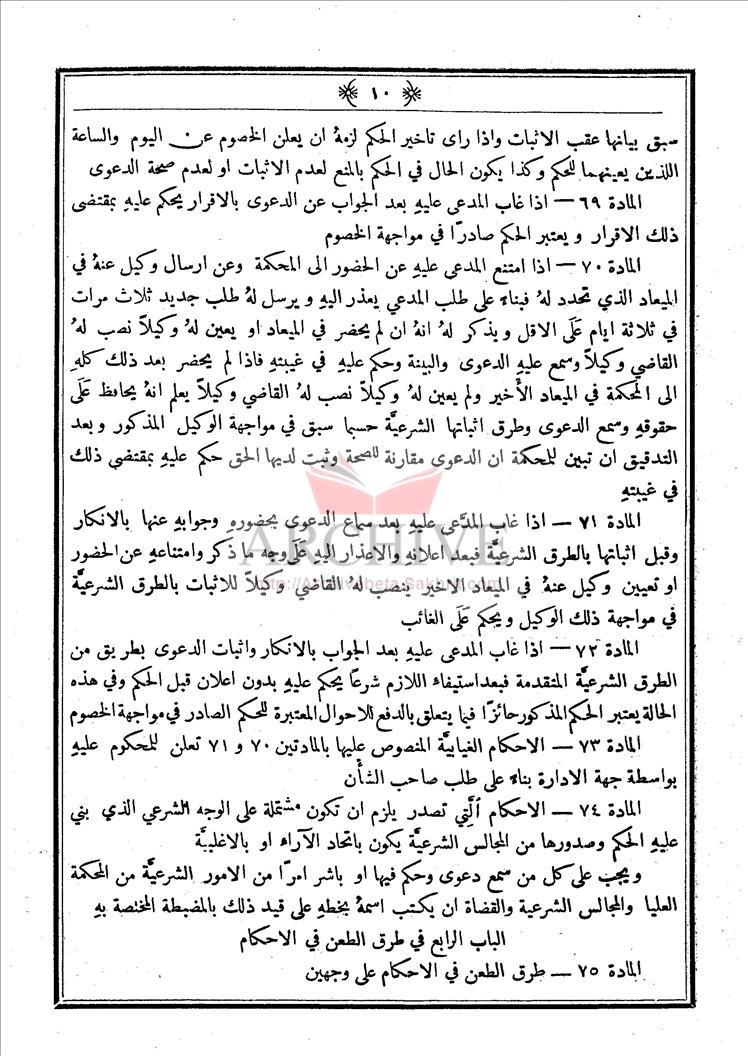 ١٠
سبق بيانها عقب الاثبات واذا راى تاخير الحكم لزمهُ ان يعلن الخصوم عن اليوم والساعة
اللذين يعينهما للحكم وكذا يكون الحال في الحكم بالمنع لعدم الاثبات او لعدم صحة الدعوى
المادة ٦٩ — اذا غاب المدعى عليهِ بعد الجواب عن الدعوى بالاقرار يحكم عليهِ بمقتضى
ذلك الاقرار ويعتبر الحكم صادرًا في مواجهة الخصوم
المادة ٧٠ — اذا امتنع المدعى عليهِ عن الحضور الى المحكمة وعن ارسال وكيل عنهُ في
الميعاد الذي تحدد لهُ فبناء على طلب المدعي يعذر اليهِ ويرسل لهُ طلب جديد ثلاث مرات
في ثلاثة ايام عَلَى الاقل ويذكر لهُ انهُ ان لم يحضر في الميعاد او يعين لهُ وكيلًا نصب لهُ
القاضي وكيلًا وسمع عليهِ الدعوى والبينة وحكم عليهِ في غيبتهِ فاذا لم يحضر بعد ذلك كلهِ
الى المحكمة في الميعاد الأخير ولم يعين لهُ وكيلًا نصب لهُ القاضي وكيلًا يعلم انهُ يحافظ عَلَى
حقوقهِ وسمع الدعوى وطرق اثباتها الشرعيَّة حسبما سبق في مواجهة الوكيل المذكور وبعد
التدقيق ان تبين للمحكمة ان الدعوى مقارنة للصحة وثبت لديها الحق حكم عليهِ بمقتضى ذلك
في غيبتهِ
المادة ٧١ — اذا غاب المدَّعى عليهِ بعد سماع الدعوى بحضورهِ وجوابهِ عنها بالانكار
وقبل اثباتها بالطرق الشرعيَّة فبعد اعلانهِ والاعذار اليهِ عَلَى وجه ما ذكر وامتناعهِ عن الحضور
او تعيين وكيل عنهُ في الميعاد الاخير ينصب لهُ القاضي وكيلًا للاثبات بالطرق الشرعيَّة
في مواجهة ذلك الوكيل ويحكم عَلَى الغائب
المادة ٧٢ — اذا غاب المدعى عليهِ بعد الجواب بالانكار واثبات الدعوى بطريق من
الطرق الشرعيَّة المتقدمة فبعد استيفاء اللازم شرعًا يحكم عليهِ بدون اعلان قبل الحكم وفي هذه
الحالة يعتبر الحكم المذكور حائزًا فيما يتعلق بالدفع للاحوال المعتبرة للحكم الصادر في مواجهة الخصوم
المادة ٧٣ — الاحكام الغيابيَّة المنصوص عليها بالمادتين ٧٠ و ٧١ تعلن للمحكوم عليهِ
بواسطة جهة الادارة بناء على طلب صاحب الشأن
المادة ٧٤ — الاحكام ألَّتِي تصدر يلزم ان تكون مشتملة على الوجه الشرعي الذي بني
عليهِ الحكم وصدورها من المجالس الشرعيَّة يكون باتحاد الآراء او بالاغلبيَّة
ويجب على كل من سمع دعوى وحكم فيها او باشر امرًا من الامور الشرعيَّة من المحكمة
العليا والمجالس الشرعية والقضاة ان يكتب اسمهُ بخطهِ على قيد ذلك بالمضبطة المختصة بهِ
الباب الرابع في طرق الطعن في الاحكام
المادة ٧٥ — طرق الطعن في الاحكام على وجهين
ARCHIVE